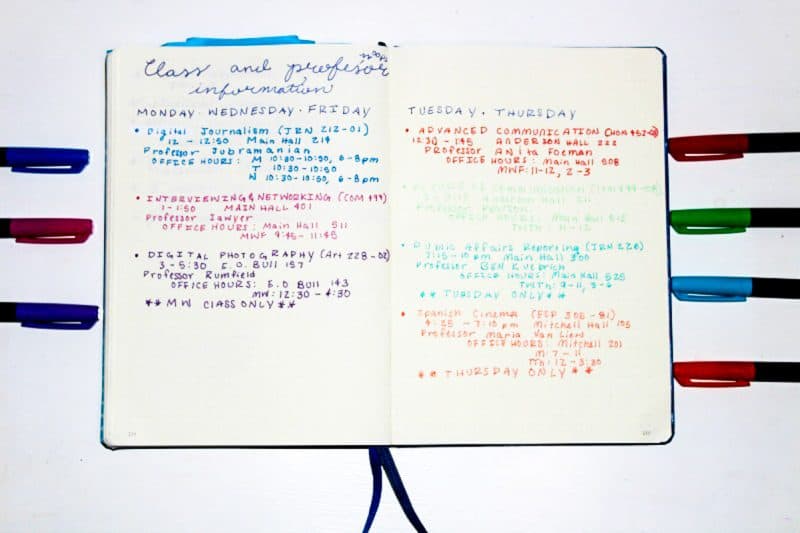 Class and profesor
information
MONDAY · WEDNESDAY · FRIDAY
• Digital Journalism (JRN 212-01)
12 - 12:50 Main Hall 214
Professor Jubramanian
OFFICE HOURS: M 10:30-10:50, 6-8pm
T 10:30-10:50
W 10:30-10:50, 6-8pm
• INTERVIEWING & NETWORKING (COM 499)
1-1:50 MAIN HALL 401
Professor Sawyer
OFFICE HOURS: Main Hall 511
MWF 9:45-11:45
• DIGITAL PHOTOGRAPHY (Art 228-02)
3-5:30 E.O. BULL 157
Professor Rumfield
OFFICE HOURS: E.O BULL 143
MW: 12:30-4:30
** MW CLASS ONLY **
TUESDAY · THURSDAY
• ADVANCED COMMUNICATION (HON
12:30 - 1:45 ANDERSON HALL 222
Professor Anita Foeman
OFFICE HOURS: Main Hall 508
MWF: 11-12, 2-3
Communication
Anderson Hall 211
Professor
OFFICE HOURS: Main Hall
TUTH: 11-12
• Public Affairs Reporting (JRN 226)
7:15-10 pm Main Hall 300
Professor BEN Kuebrich
OFFICE HOURS: Main Hall 525
TUTH: 9-11, 3-6
** TUESDAY ONLY **
• Spanish Cinema (ESP 305-81)
4:25 - 7:10 pm Mitchell Hall 105
Professor Maria Van Liew
OFFICE HOURS: Mitchell 201
M: 7-11
TH: 12-3:30
** THURSDAY ONLY **